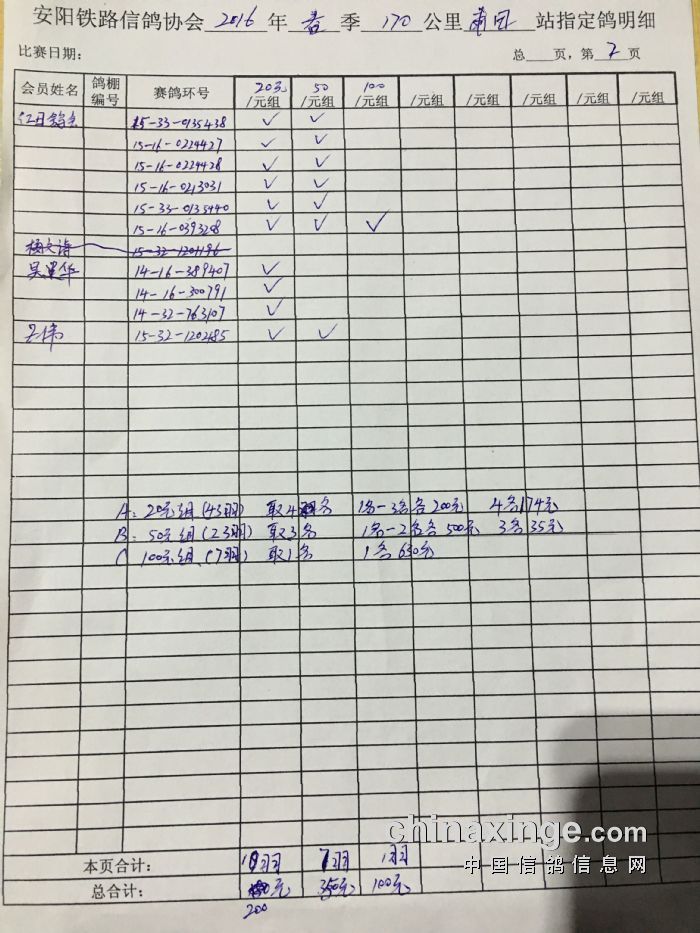 安阳铁路信鸽协会 2016 年 春 季 170 公里 莆田 站指定鸽明细
比赛日期: 总 页，第 2 页
会员姓名 鸽棚编号 赛鸽环号 20元/元组 50/元组 100/元组 /元组 /元组 /元组 /元组
15-33-0135438 ✓ ✓
15-16-0224427 ✓ ✓
15-16-0224428 ✓ ✓
15-16-0213031 ✓ ✓
15-33-0135440 ✓ ✓
15-16-0393208 ✓ ✓ ✓
15-32-1201196
14-16-389407 ✓
14-16-300791 ✓
14-32-763107 ✓
15-32-1202485 ✓ ✓
A: 20元组(43羽) 取4名 1名-3名各200元 4名174元
B: 50元组(23羽) 取3名 1名-2名各500元 3名35元
C 100元组(7羽) 取1名 1名630元
本页合计: 10羽 7羽 1羽
总合计: 元 350元 100元
200
chinaxinge.com
中国信鸽信息网